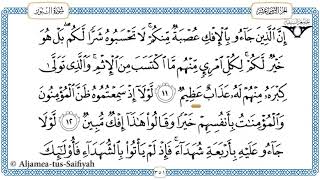 سُورَةُ النُّورِ
الجزء الثامن عشر
إِنَّ الَّذِينَ جَاءُو بِالْإِفْكِ عُصْبَةٌ مِنْكُمْ ۚ لَا تَحْسَبُوهُ شَرًّا لَكُمْ ۖ بَلْ هُوَ
خَيْرٌ لَكُمْ ۚ لِكُلِّ امْرِئٍ مِنْهُمْ مَا اكْتَسَبَ مِنَ الْإِثْمِ ۚ وَالَّذِي تَوَلَّى
كِبْرَهُ مِنْهُمْ لَهُ عَذَابٌ عَظِيمٌ ﴿١١﴾ لَوْلَا إِذْ سَمِعْتُمُوهُ ظَنَّ الْمُؤْمِنُونَ
وَالْمُؤْمِنَاتُ بِأَنْفُسِهِمْ خَيْرًا وَقَالُوا هَذَا إِفْكٌ مُبِينٌ ﴿١٢﴾ لَوْلَا
جَاءُو عَلَيْهِ بِأَرْبَعَةِ شُهَدَاءَ ۚ فَإِذْ لَمْ يَأْتُوا بِالشُّهَدَاءِ فَأُولَٰئِكَ
© Aljamea-tus-Saifiyah
٣٥١